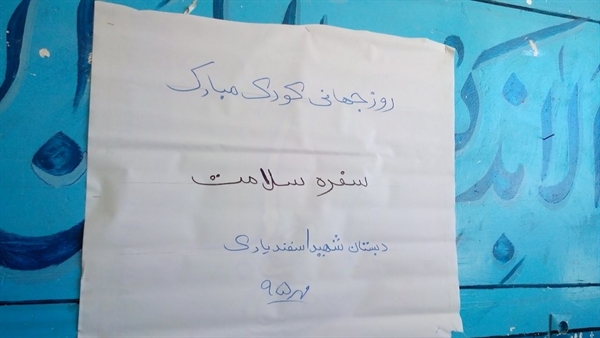 روز جهانی کودک مبارک
سفره سلامت
دبستان شهید اسفندیاری
مهر ۹۵